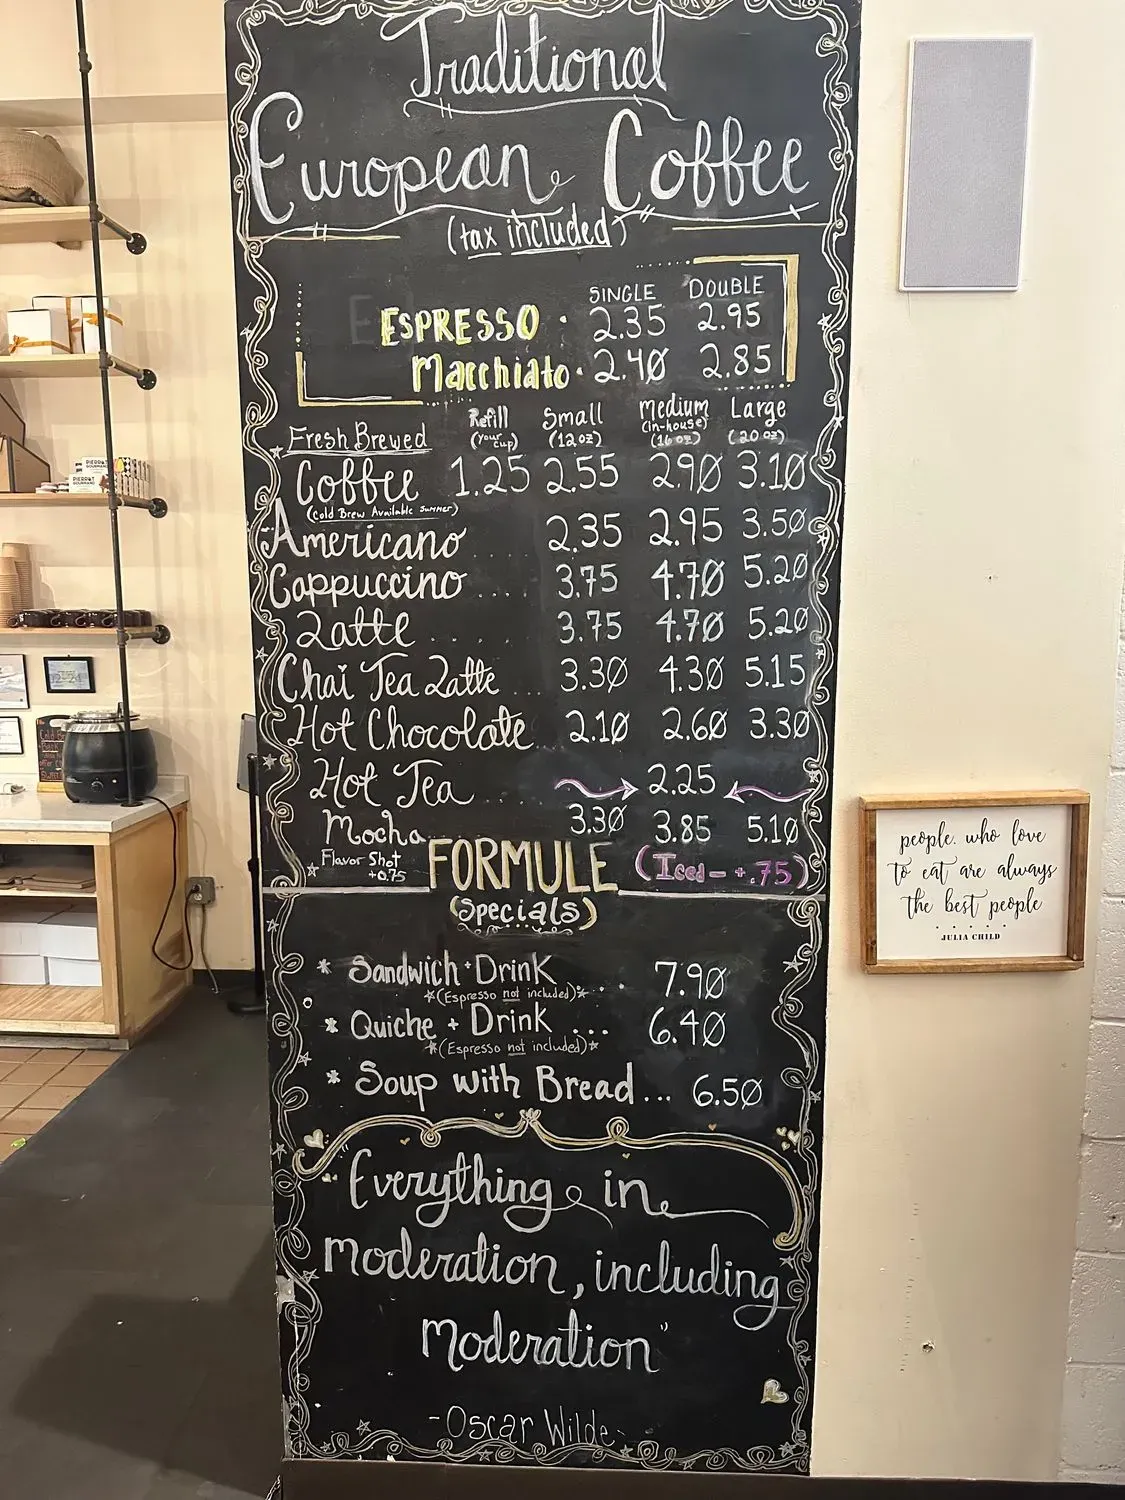 Traditional
European Coffee
(tax included)
SINGLE DOUBLE
ESPRESSO · 2.35 2.95
Macchiato · 2.40 2.85
Fresh Brewed Refill (your cup) Small (12 oz) Medium (in-house) (16 oz) Large (20 oz)
Coffee 1.25 2.55 2.90 3.10
(Cold Brew Available Summer)
Americano .... 2.35 2.95 3.50
Cappuccino .... 3.75 4.70 5.20
Latte ..... 3.75 4.70 5.20
Chai Tea Latte ... 3.30 4.30 5.15
Hot Chocolate .. 2.10 2.60 3.30
Hot Tea .... 2.25
Mocha .. 3.30 3.85 5.10
Flavor Shot
+0.75
(Iced - +.75)
FORMULE
(Specials)
* Sandwich + Drink ... 7.90
*(Espresso not included)*
* Quiche + Drink ... 6.40
*(Espresso not included)*
* Soup with Bread ... 6.50
"Everything in
moderation, including
moderation"
-Oscar Wilde-
people who love
to eat are always
the best people
JULIA CHILD
PIERROT
GOURMAND
PIERROT
GOURMAND